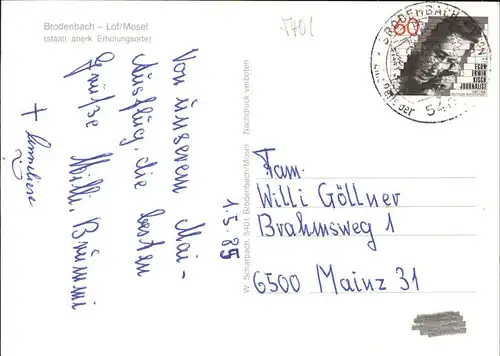 Brodenbach – Löf/Mosel
(staatl. anerk. Erholungsorte)
5401
Von unserem Mai-
Ausflug, die besten
Grüße Willi, Brummi
+ Anneliese
1.5.85
W. Scharbach, 5401 Brodenbach/Mosel Nachdruck verboten
BRODENBACH
60
EGON
ERWIN
KISCH
JOURNALIST
Fam.
Willi Göllner
Brahmsweg 1
6500 Mainz 31